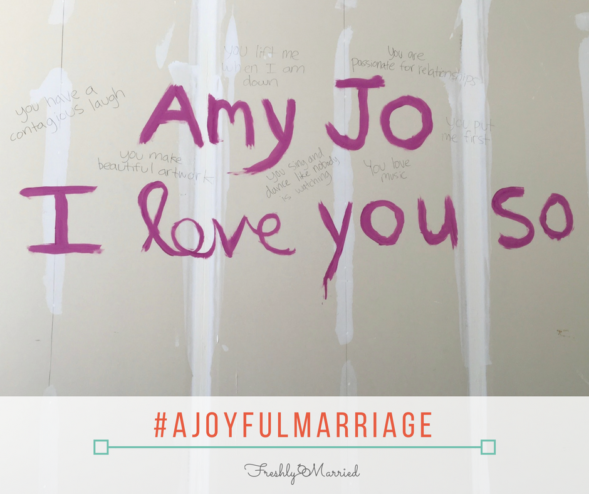 you lift me
when I am
down
You are
passionate for relationships
you have a
contagious laugh
Amy Jo
You put
me first
you make
beautiful artwork
you sing and
dance like nobody
is watching
You love
music
I love you so
#AJOYFULMARRIAGE
Freshly Married